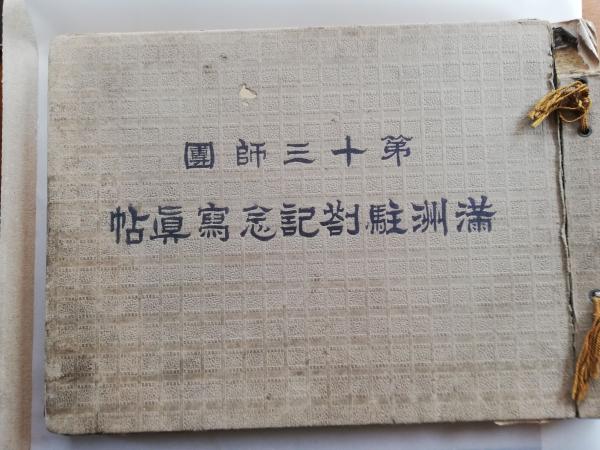 第十三師團
滿洲駐劄記念寫眞帖